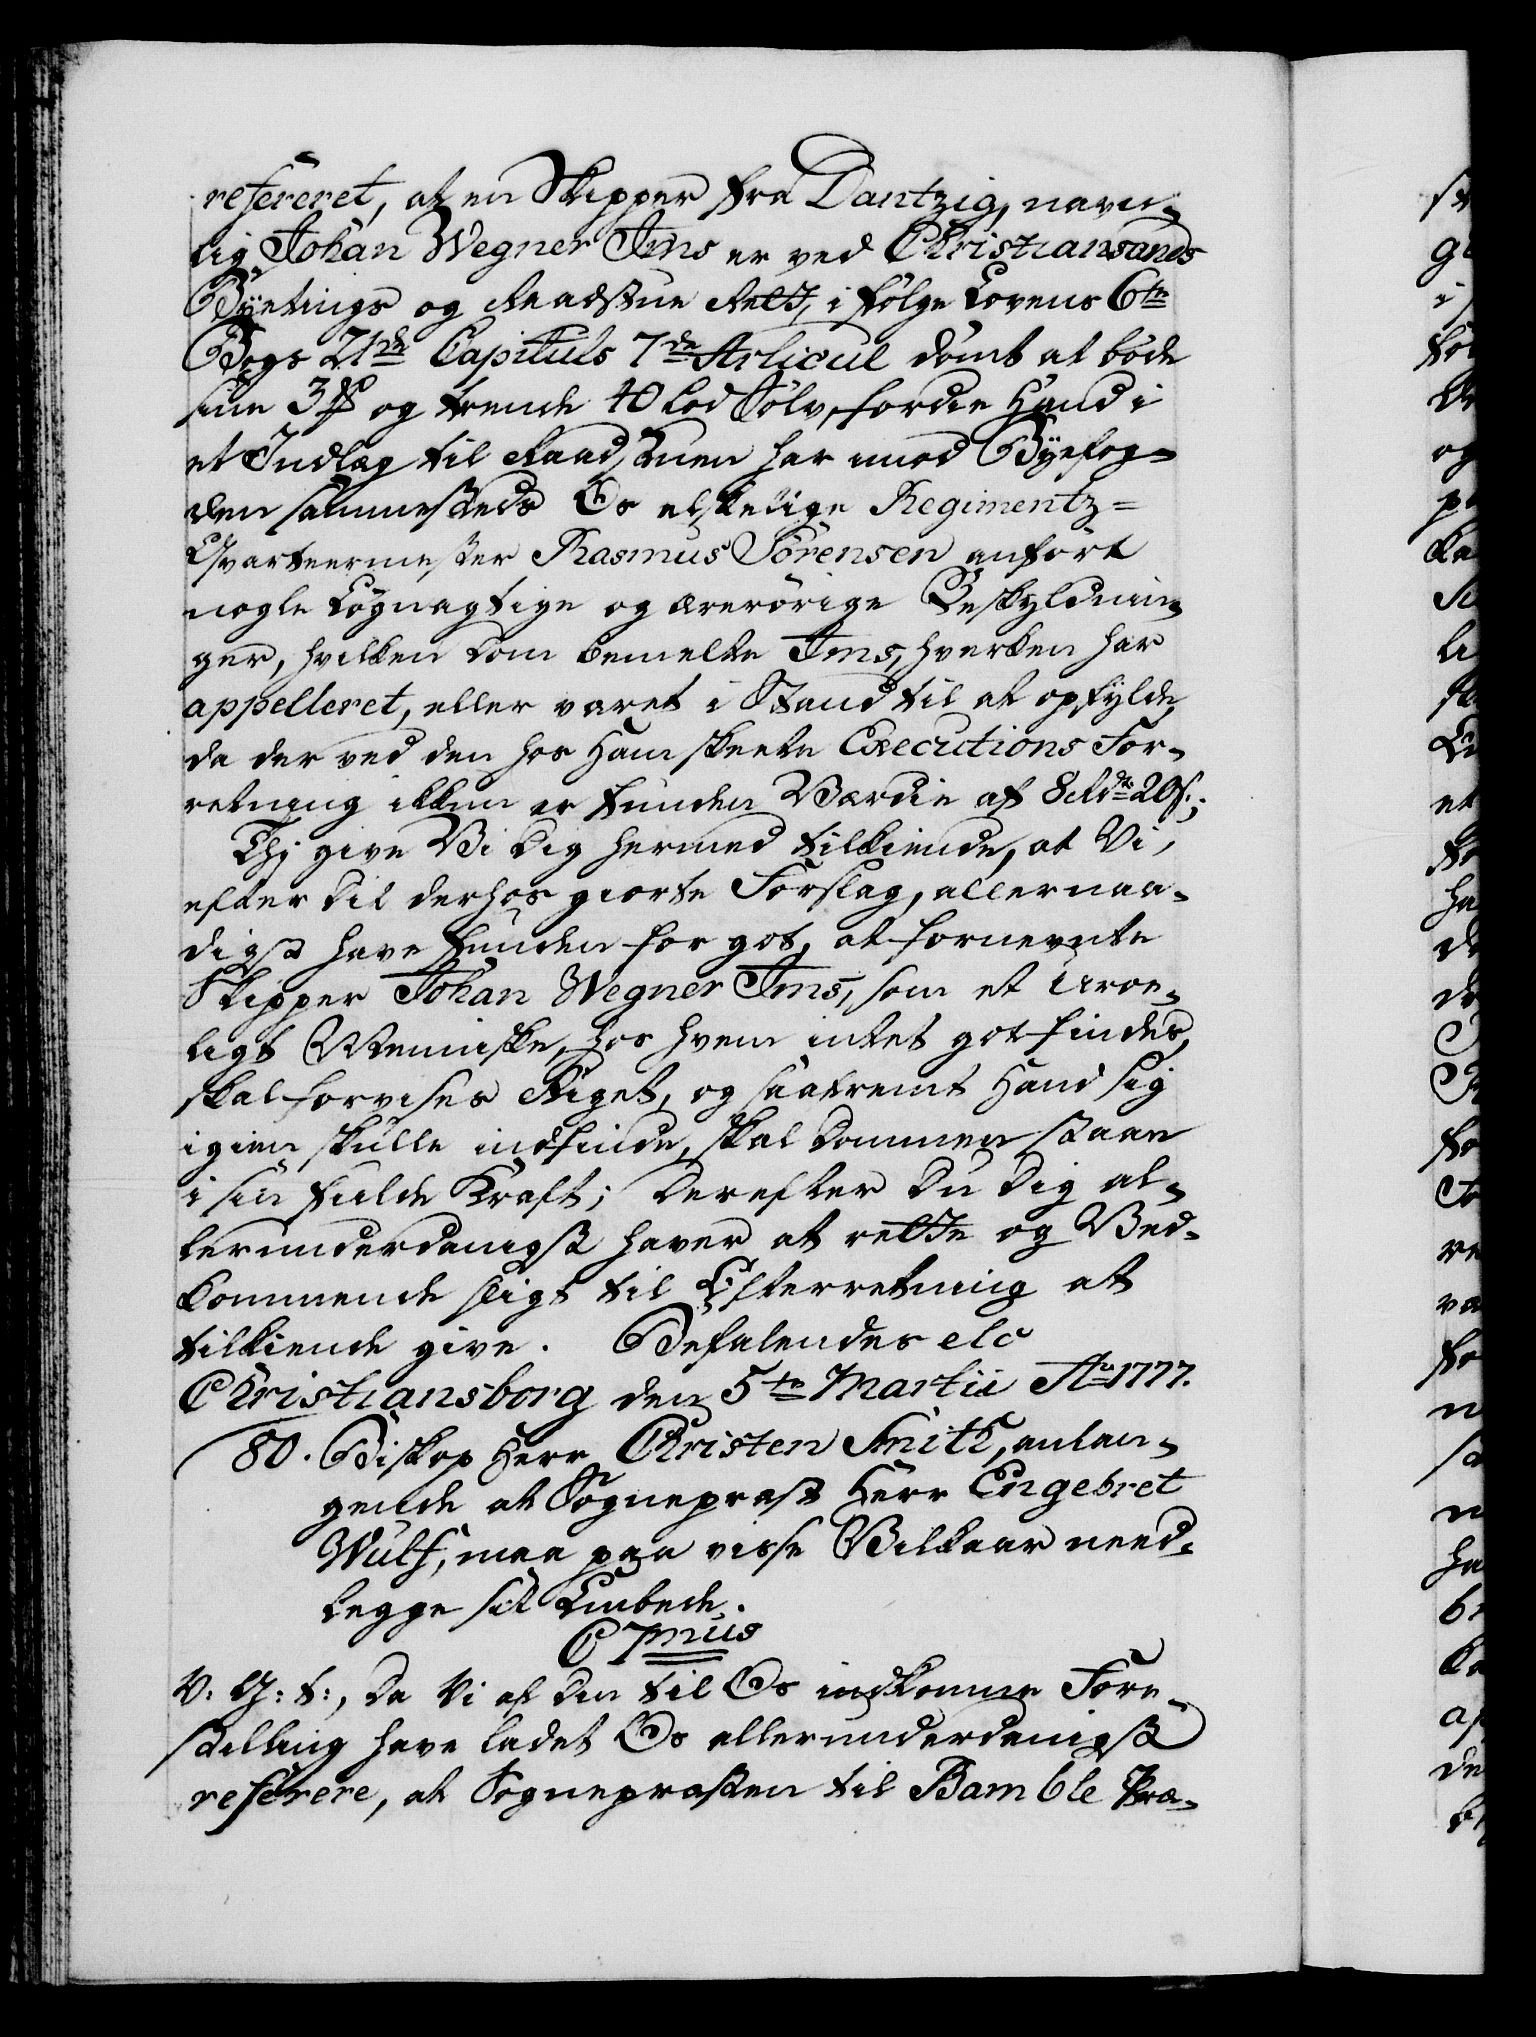 refereret, at en Skipper fra Dantzig, navn-
lig Johan Wegner Ims er ved Christiansands
Byetings og Raadstue Rett, i følge Lovens 6te
Bogs 21de Capituls 7de Articul dömt at böde
sine 3 og trende 40 Lod Sölv, fordie Hand i
et Indlæg til Raadstuen har imod Byefog-
den sammesteds Os elskelige Regimentz-
Qvarteermester Rasmus Sörensen anfört
nogle Løgnagtige og ærerörige Beskyldnin-
ger, hvilken Dom bemelte Ims, hverken har
appelleret, eller varet i Stand til at opfylde,
da der ved den hos Ham skeete Executions For-
retning ikkun er funden Værdie af 8 Rdr 20 s.;
Thj give Vi Dig hermed tilkiende, at Vi,
efter Dit derhos giorte Forslag, allernaa-
digst have funden for got, at fornevnte
Skipper Johan Wegner Ims, som et uroe-
ligt Menniske, hos hvem intet got findes,
skal forvises Riget, og saafremt Hand sig
igien skulle indfinde, skal Dommen staae
i sin fulde Kraft; Derefter Du Dig al-
lerunderdanigst haver at rette og Ved-
kommende sligt til Efterretning at
tilkiende give. Befalendes etc
Christiansborg den 5te Martii Ao 1777.
80. Biskop Herr Christen Smith, anlan-
gende at Sognepræst Herr Engebret
Wulf, maa paa visse Vilkaar need-
legge sit Embede.
C 7mus
V: G: t:, Da Vi af Din til Os indkomne Fore-
stilling have ladet Os allerunderdanigst
referere, at Sognepræsten til Bamble Præ-